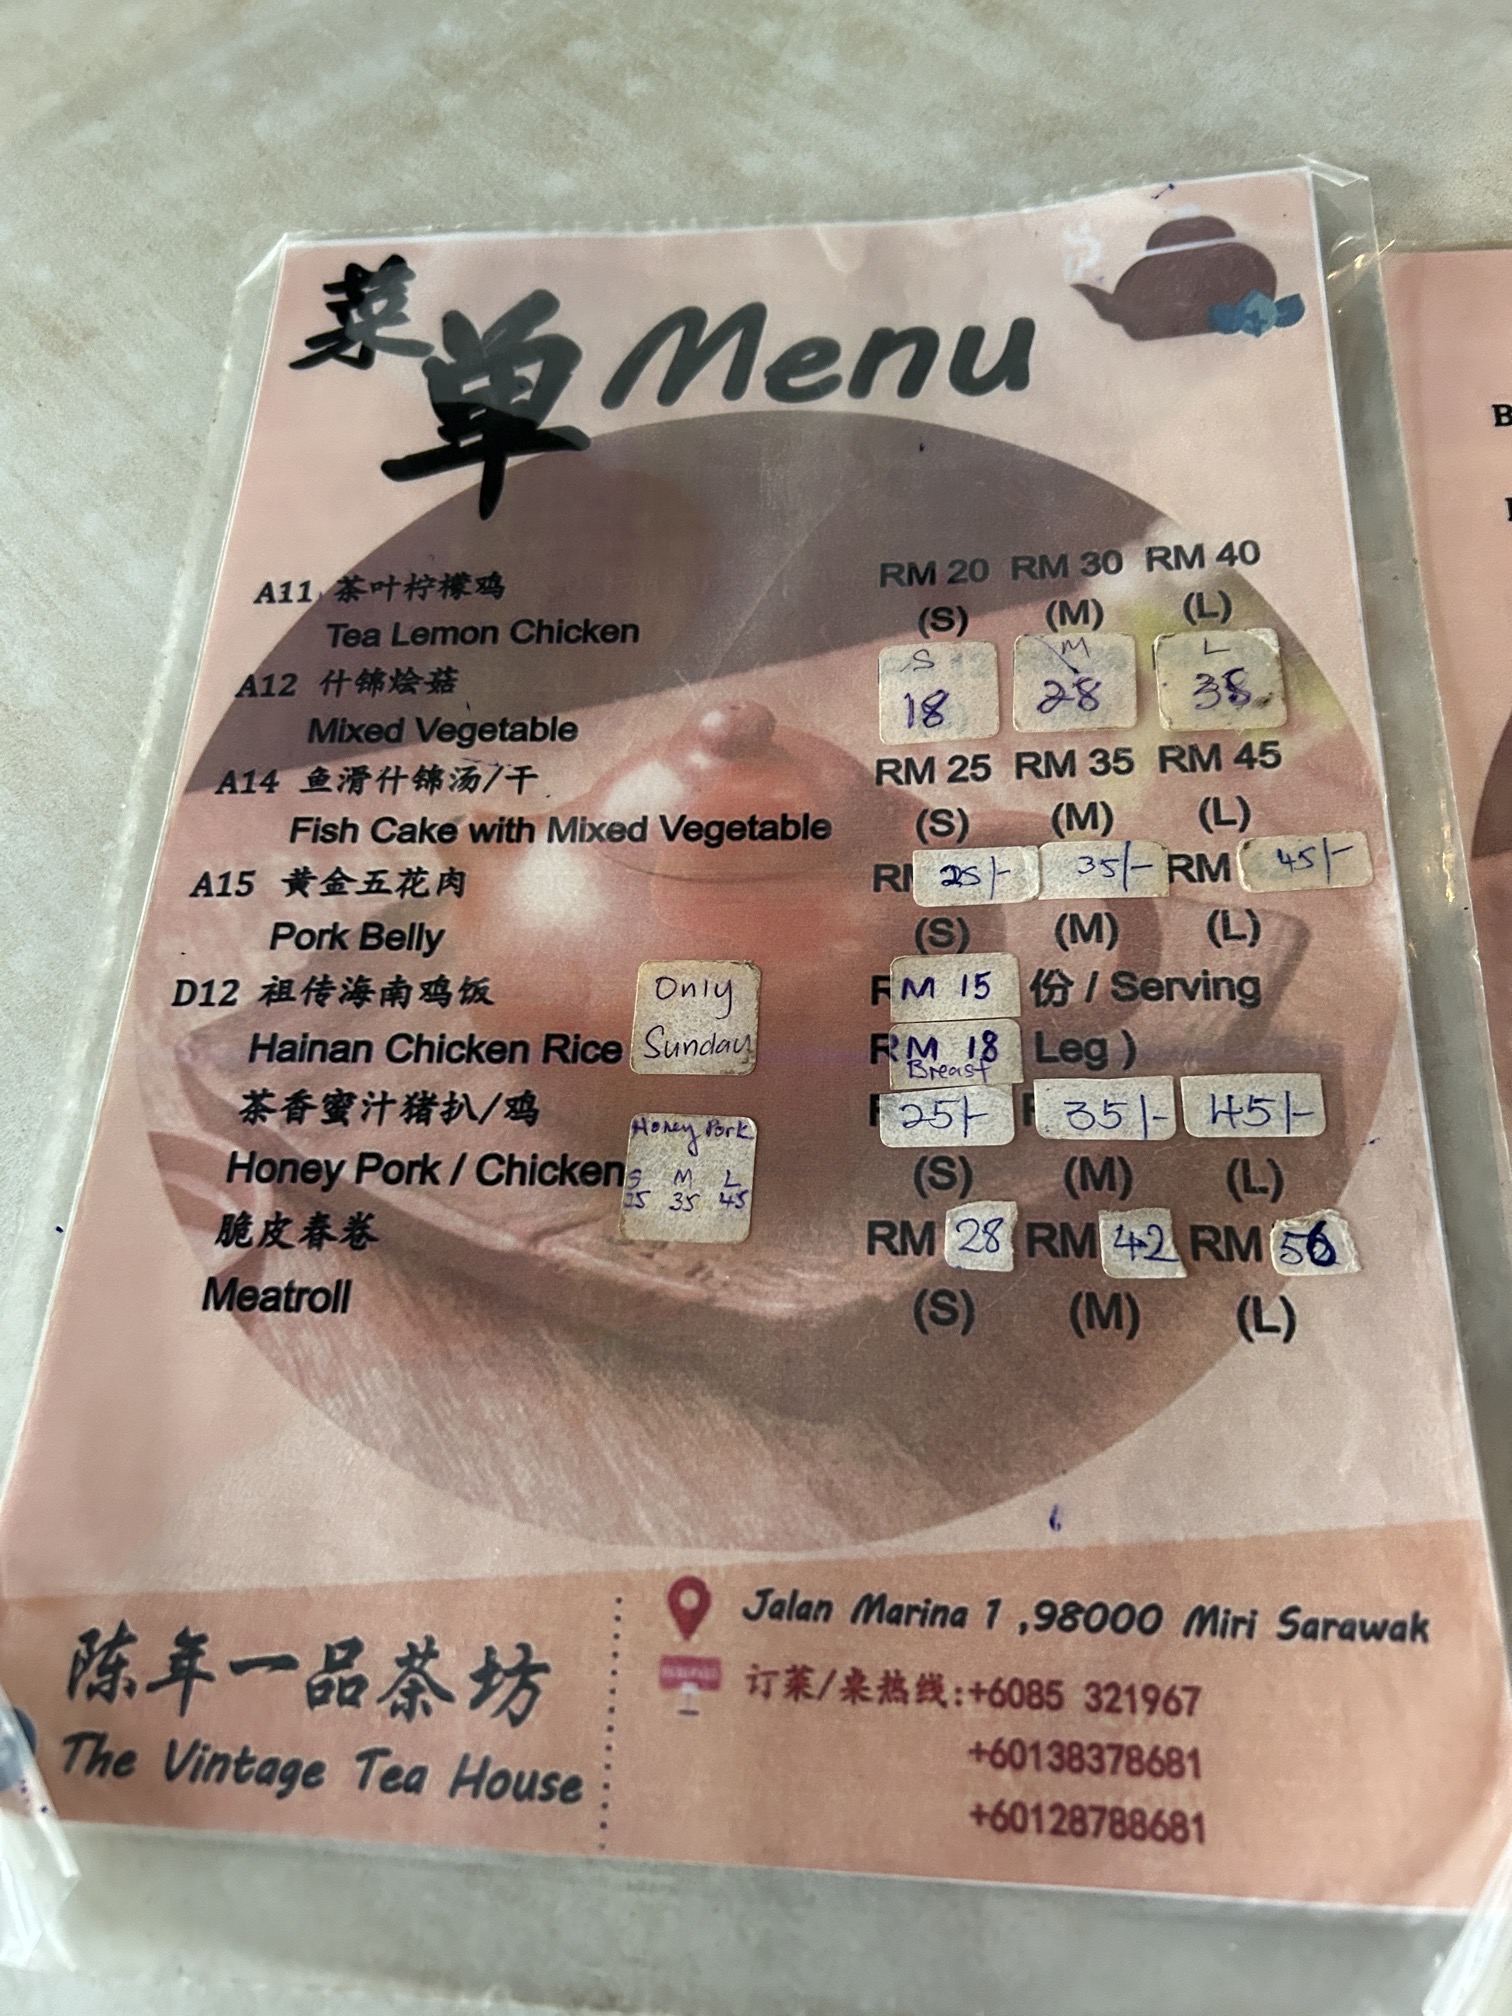 菜单 Menu
A11 茶叶柠檬鸡 RM 20 RM 30 RM 40
Tea Lemon Chicken (S) (M) (L)
A12 什锦烩菇 S M L
Mixed Vegetable 18 28 38
A14 鱼滑什锦汤/干 RM 25 RM 35 RM 45
Fish Cake with Mixed Vegetable (S) (M) (L)
A15 黄金五花肉 25/- 35/- RM 45/-
Pork Belly (S) (M) (L)
D12 祖传海南鸡饭 Only RM 15 份 / Serving
Hainan Chicken Rice Sunday RM 18 Leg )
Breast
茶香蜜汁猪扒/鸡 Honey Pork 25/- 35/- 45/-
Honey Pork / Chicken S M L (S) (M) (L)
25 35 45
脆皮春卷 RM 28 RM 42 RM 56
Meatroll (S) (M) (L)
陈年一品茶坊
The Vintage Tea House
Jalan Marina 1 ,98000 Miri Sarawak
订菜/桌热线:+6085 321967
+60138378681
+60128788681